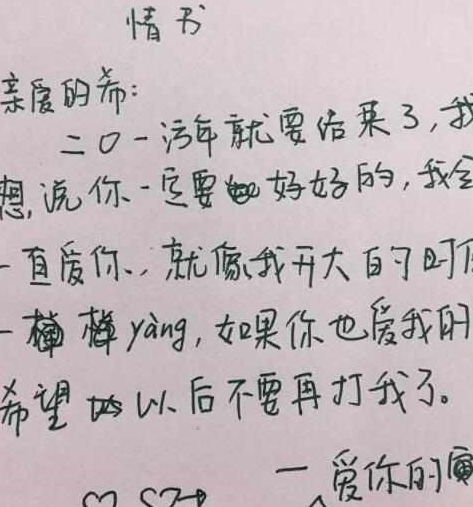 情书
亲爱的希:
二〇一 年就要结束了,我
想,说你一定要好好的,我会
一直爱你,就像我开大 的时
一 yàng,如果你也爱我的
希望 以后不要再打我了。
一爱你的